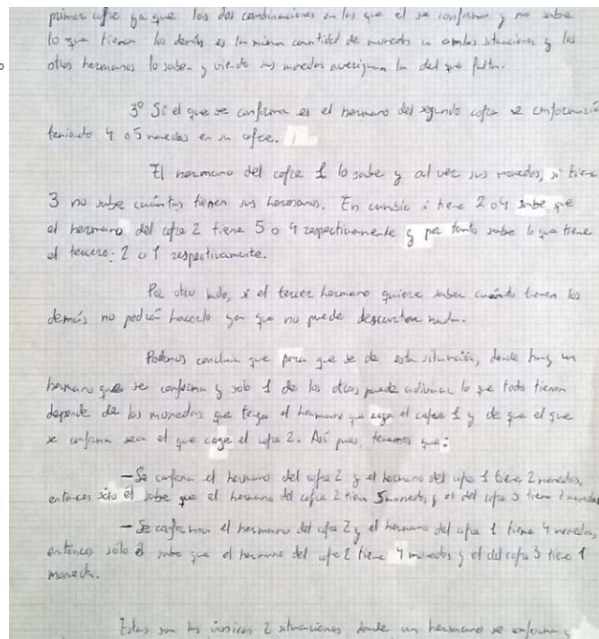 primer cofre ya que las dos combinaciones en las que el se conforma y no sabe
lo que tienen los demás es la misma cantidad de monedas en ambas situaciones y los
otros hermanos lo saben y viendo sus monedas averiguan la del que falta.
3º Si el que se conforma es el hermano del segundo cofre se conformaría
teniendo 4 o 5 monedas en su cofre.
El hermano del cofre 1 lo sabe y al ver sus monedas, si tiene
3 no sabe cuántas tienen sus hermanos. En cambio si tiene 2 o 4 sabe que
el hermano del cofre 2 tiene 5 o 4 respectivamente y por tanto sabe lo que tiene
el tercero: 2 o 1 respectivamente.
Por otro lado, si el tercer hermano quiere saber cuánto tienen los
demás no podrá hacerlo ya que no puede descartar nada.
Podemos concluir que para que se de esta situación, donde hay un
hermano que se conforma y solo 1 de los otros puede adivinar lo que todos tienen
depende de las monedas que tenga el hermano que coga el cofre 1 y de que el que
se conforma sea el que coge el cofre 2. Así pues, tenemos que:
- Se conforma el hermano del cofre 2 y el hermano del cofre 1 tiene 2 monedas,
entonces sólo él sabe que el hermano del cofre 2 tiene 5 monedas y el del cofre 3 tiene 2 monedas
- Se conforma el hermano del cofre 2 y el hermano del cofre 1 tiene 4 monedas,
entonces sólo él sabe que el hermano del cofre 2 tiene 4 monedas y el del cofre 3 tiene 1
moneda.
Estas son las únicas 2 situaciones donde un hermano se conforma y